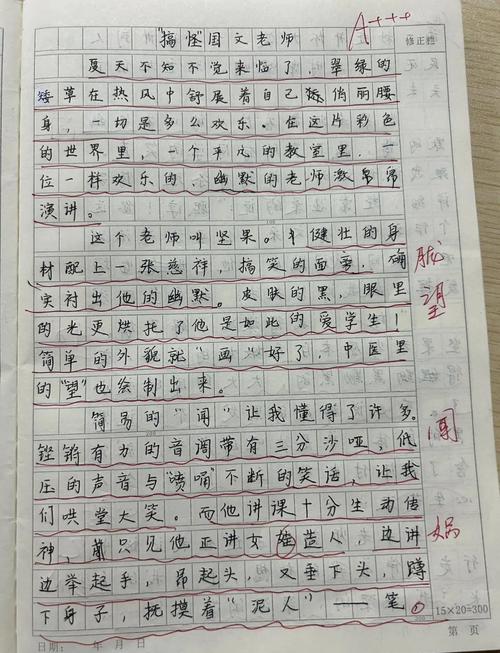 "搞怪"国文老师
A+++
修正栏
夏天不知不觉来临了，翠绿的
矮草在热风中舒展着自己矮俏丽腰
身，一切是多么欢乐。在这片彩色
的世界里，一个平凡的教室里，一
位一样欢乐的，幽默的老师激昂昂
演讲。
这个老师叫坚果。健壮的身
材配上一张慈祥，搞笑的面容，确
实衬出他的幽默。皮肤的黑，眼里
的光更烘托了他是如此的爱学生！
简单的外貌就"画"好了，中医里
的"望"也绘制出来。
望
简易的"闻"让我懂得了许多。
铿锵有力的音调带有三分沙哑，低
闻
压的声音与"喷涌"不断的笑话，让我
们哄堂大笑。而他讲课十分生动传
神，莆只见他正讲女雄造人，边讲
娲
边举起手，昂起头，又垂下头，蹲
下身子，抚摸着"泥人"——笔
15×20=300
日期： 年 月 日
第 页